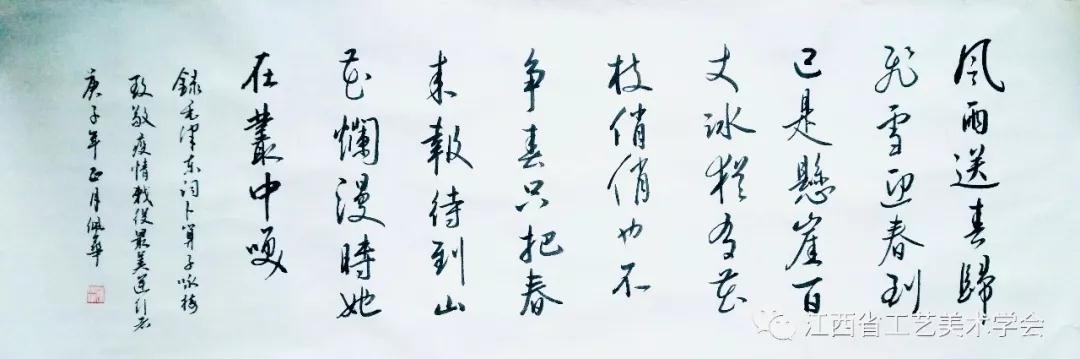 風雨送春歸
飛雪迎春到
已是懸崖百
丈冰猶有花
枝俏俏也不
争春只把春
来報待到山
花爛漫時她
在叢中咲
録毛澤东词卜算子咏梅
致敬疫情戰役最美逆行者
庚子年正月佩華
江西省工艺美术学会